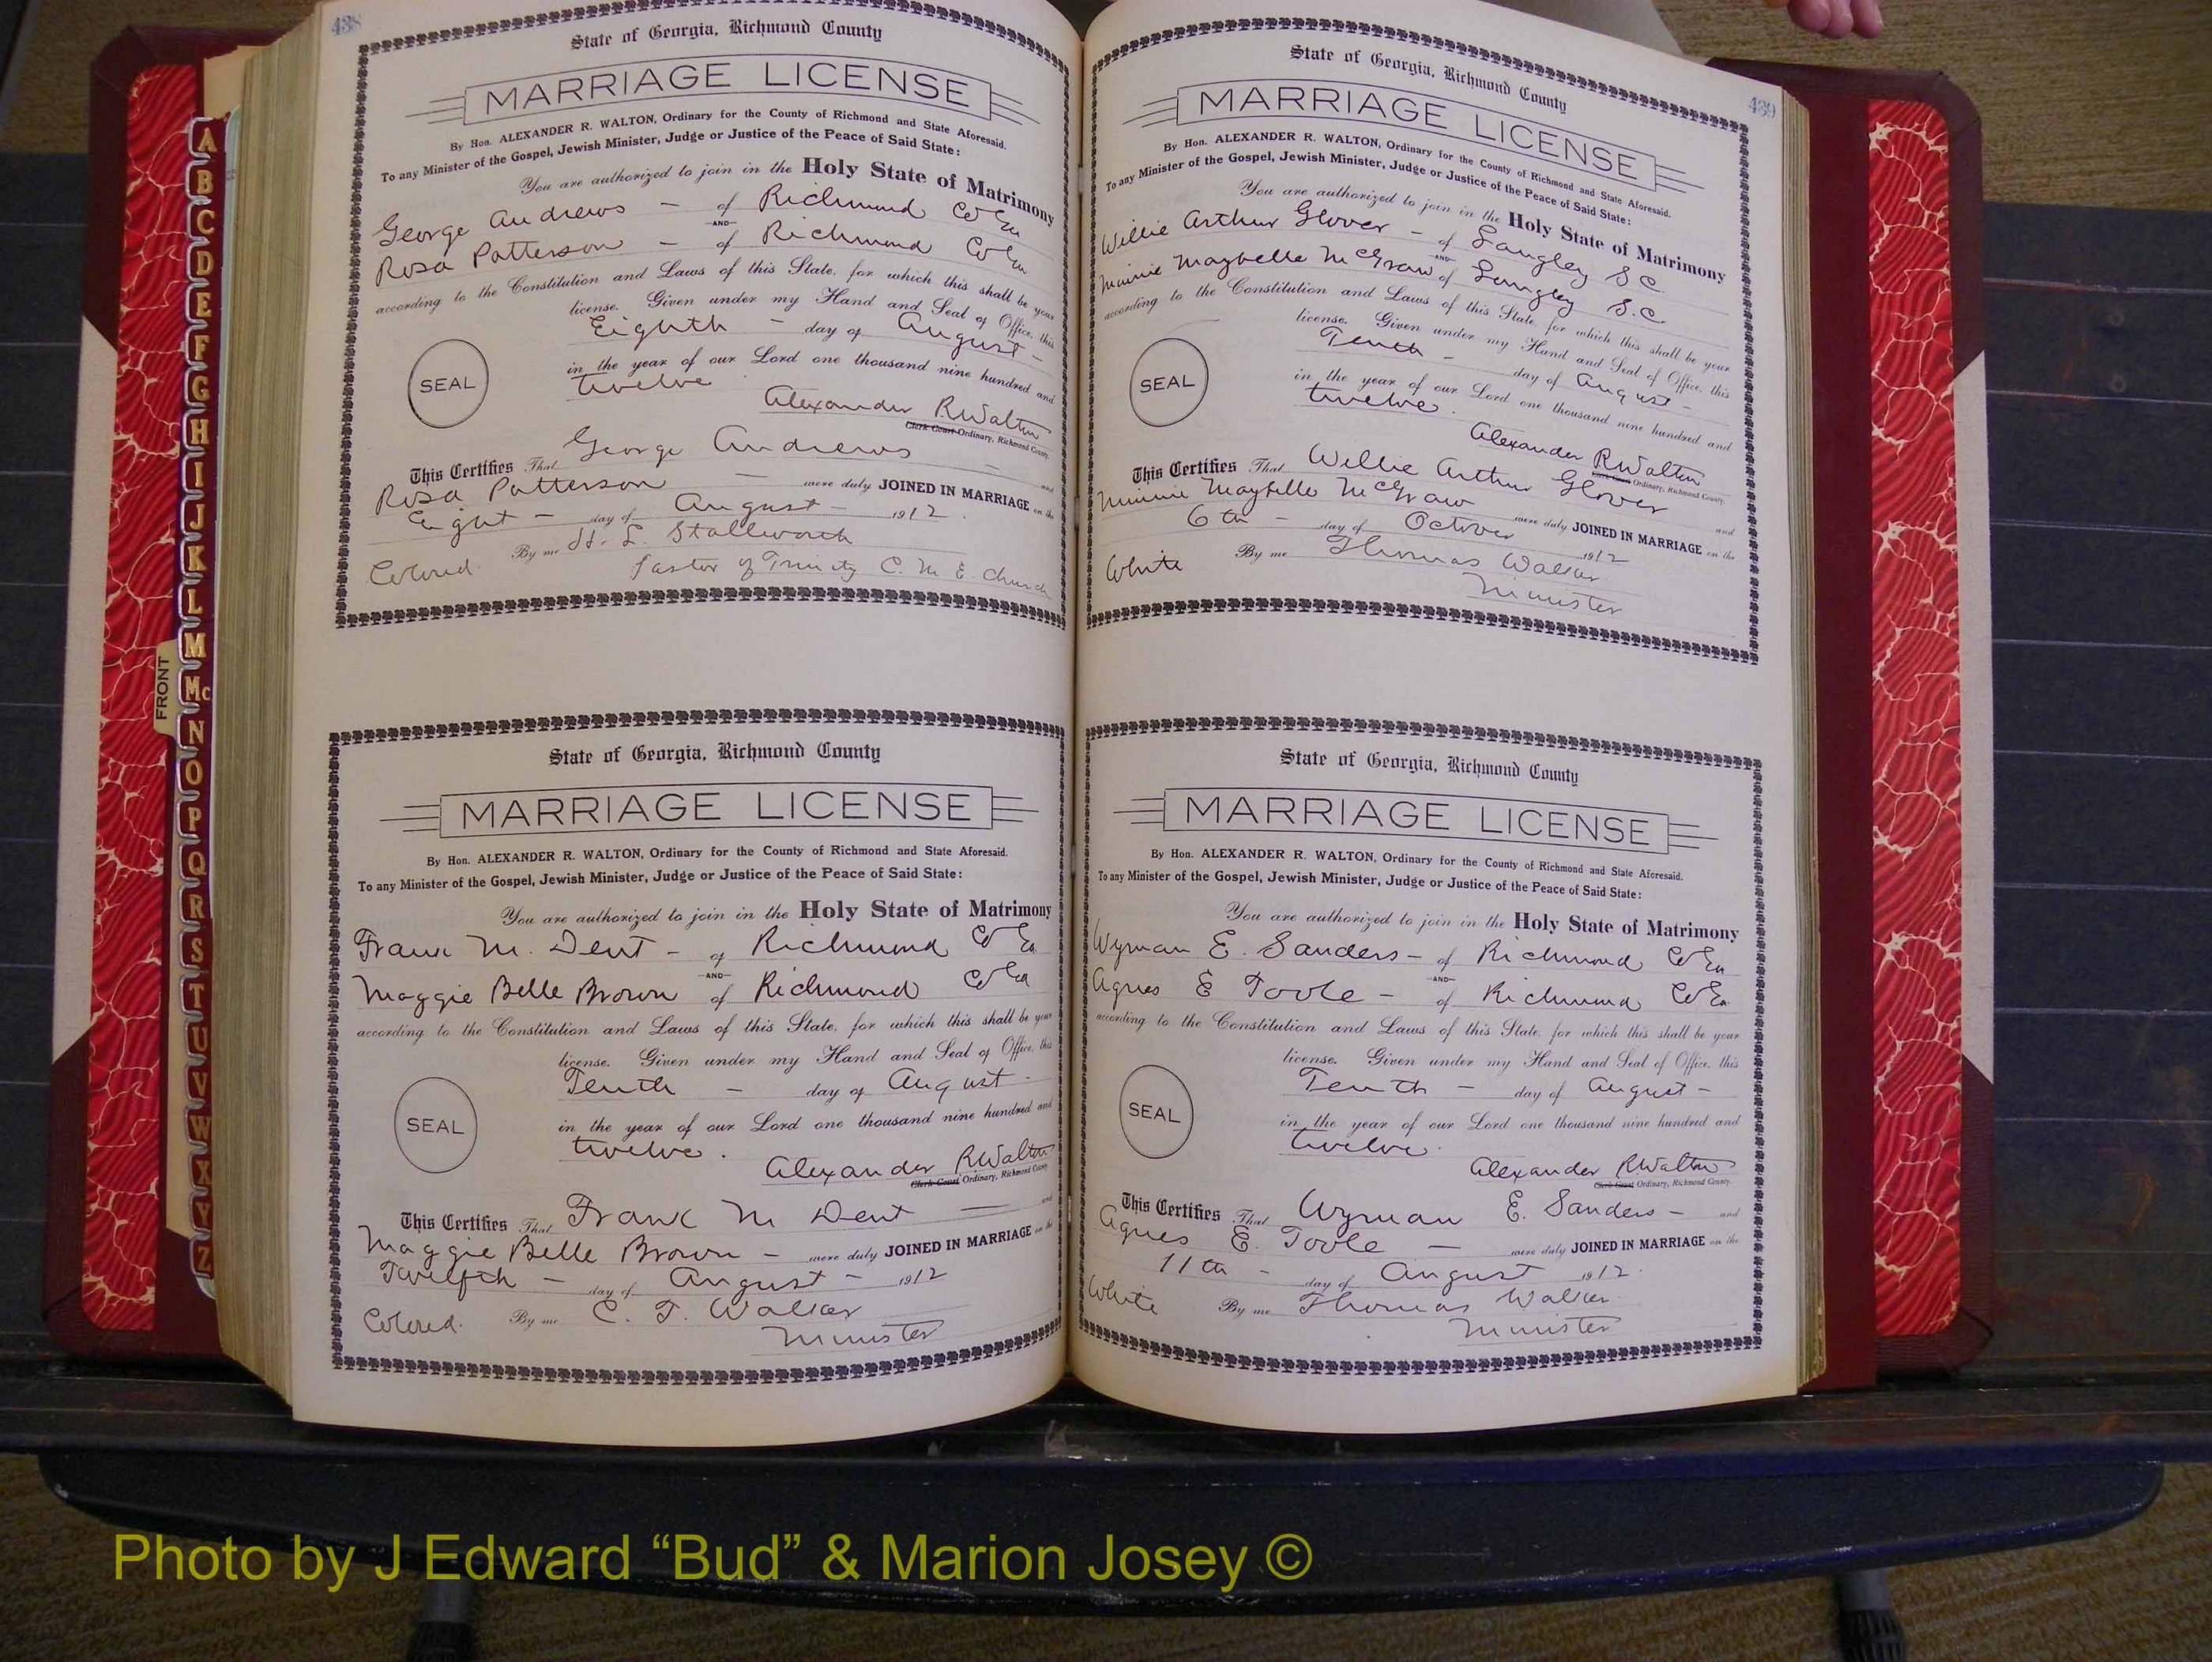 438
State of Georgia, Richmond County
MARRIAGE LICENSE
By Hon. ALEXANDER R. WALTON, Ordinary for the County of Richmond and State Aforesaid.
To any Minister of the Gospel, Jewish Minister, Judge or Justice of the Peace of Said State:
You are authorized to join in the Holy State of Matrimony
George Andrews - of Richmond Co Ga
AND
Rosa Patterson - of Richmond Co Ga
according to the Constitution and Laws of this State, for which this shall be your
license. Given under my Hand and Seal of Office, this
Eighth - day of August -
in the year of our Lord one thousand nine hundred and
twelve
SEAL
Alexander R Walton
Clerk Court Ordinary, Richmond County.
This Certifies That George Andrews - and
Rosa Patterson - were duly JOINED IN MARRIAGE on the
Eight - day of August - 1912.
Colored. By me H. L. Stallworth
Pastor of Trinity C. M. E. Church
State of Georgia, Richmond County
MARRIAGE LICENSE
By Hon. ALEXANDER R. WALTON, Ordinary for the County of Richmond and State Aforesaid.
To any Minister of the Gospel, Jewish Minister, Judge or Justice of the Peace of Said State:
You are authorized to join in the Holy State of Matrimony
Frank M. Dent - of Richmond Co Ga
AND
Maggie Belle Brown of Richmond Co Ga
according to the Constitution and Laws of this State, for which this shall be your
license. Given under my Hand and Seal of Office, this
Tenth - day of August -
in the year of our Lord one thousand nine hundred and
twelve.
SEAL
Alexander R Walton
Clerk Court Ordinary, Richmond County.
This Certifies That Frank M Dent - and
Maggie Belle Brown - were duly JOINED IN MARRIAGE on the
Twelfth - day of August - 1912
Colored. By me C. T. Walker
Minister
439
State of Georgia, Richmond County
MARRIAGE LICENSE
By Hon. ALEXANDER R. WALTON, Ordinary for the County of Richmond and State Aforesaid.
To any Minister of the Gospel, Jewish Minister, Judge or Justice of the Peace of Said State:
You are authorized to join in the Holy State of Matrimony
Willie Arthur Glover - of Langley S C.
AND
Minnie Maybelle McGraw of Langley S.C
according to the Constitution and Laws of this State, for which this shall be your
license. Given under my Hand and Seal of Office, this
Tenth - day of August -
in the year of our Lord one thousand nine hundred and
twelve.
SEAL
Alexander R Walton
Clerk Court Ordinary, Richmond County.
This Certifies That Willie Arthur Glover and
Minnie Maybelle McGraw were duly JOINED IN MARRIAGE on the
6th - day of October 1912
White By me Thomas Walker
Minister
State of Georgia, Richmond County
MARRIAGE LICENSE
By Hon. ALEXANDER R. WALTON, Ordinary for the County of Richmond and State Aforesaid.
To any Minister of the Gospel, Jewish Minister, Judge or Justice of the Peace of Said State:
You are authorized to join in the Holy State of Matrimony
Wyman E. Sanders - of Richmond Co Ga
AND
Agnes E Toole - of Richmond Co Ga
according to the Constitution and Laws of this State, for which this shall be your
license. Given under my Hand and Seal of Office, this
Tenth - day of August -
in the year of our Lord one thousand nine hundred and
twelve.
SEAL
Alexander R Walton
Clerk Court Ordinary, Richmond County.
This Certifies That Wyman E. Sanders - and
Agnes E. Toole - were duly JOINED IN MARRIAGE on the
11th - day of August 1912.
White By me Thomas Walker
Minister
FRONT
A
B
C
D
E
F
G
H
I
J
K
L
M
Mc
N
O
P
Q
R
S
T
U
V
W
X
Y
Z
Photo by J Edward “Bud” & Marion Josey ©